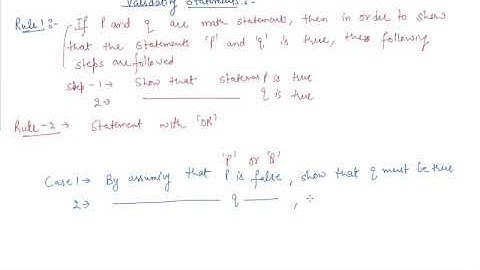 Validating Statements :-
Rule 1 :- If P and q are math statements, then in order to show
that the statements 'P' and 'q' is true, the following
steps are followed
Step-1 → Show that statement P is true
2 → ——— q is true
Rule-2 → Statement with 'OR'
'P' or 'Q'
Case 1 → By assuming that P is false, show that q must be true
2 → ——— q ——— ,